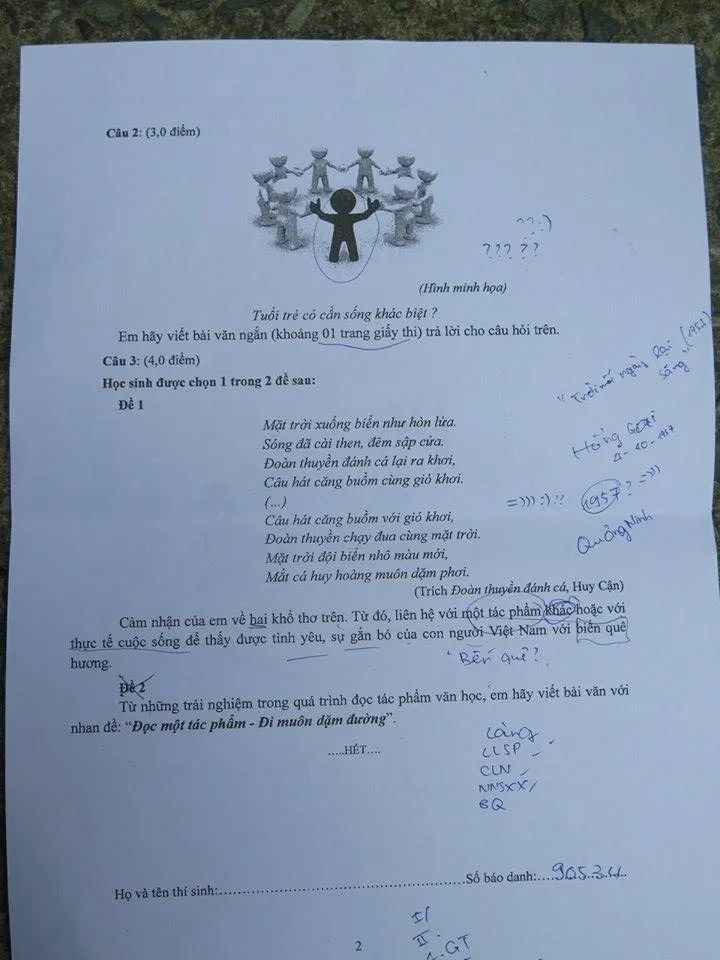 Câu 2: (3,0 điểm)
??:)
??? ??
(Hình minh họa)
Tuổi trẻ có cần sống khác biệt ?
Em hãy viết bài văn ngắn (khoảng 01 trang giấy thi) trả lời cho câu hỏi trên.
Câu 3: (4,0 điểm)
Học sinh được chọn 1 trong 2 đề sau:
Đề 1
"Trời mỗi ngày lại sáng" (1958)
Mặt trời xuống biển như hòn lửa.
Sóng đã cài then, đêm sập cửa.
Đoàn thuyền đánh cá lại ra khơi,
Câu hát căng buồm cùng gió khơi.
(...)
Câu hát căng buồm với gió khơi,
Đoàn thuyền chạy đua cùng mặt trời.
Mặt trời đội biển nhô màu mới,
Mắt cá huy hoàng muôn dặm phơi.
Hồng Gai
4-10-1957
=))) :) !!
1957? =)))
Quảng Ninh
(Trích Đoàn thuyền đánh cá, Huy Cận)
Cảm nhận của em về hai khổ thơ trên. Từ đó, liên hệ với một tác phẩm khác hoặc với
thực tế cuộc sống để thấy được tình yêu, sự gắn bó của con người Việt Nam với biển quê
hương.
"Bến quê?
Đề 2
Từ những trải nghiệm trong quá trình đọc tác phẩm văn học, em hãy viết bài văn với
nhan đề: "Đọc một tác phẩm - Đi muôn dặm đường".
.....HẾT....
Làng
LLSP
CLN
NNSXX
BQ
Họ và tên thí sinh:..........................................................Số báo danh:....90534..
I/
II.
1. GT
2